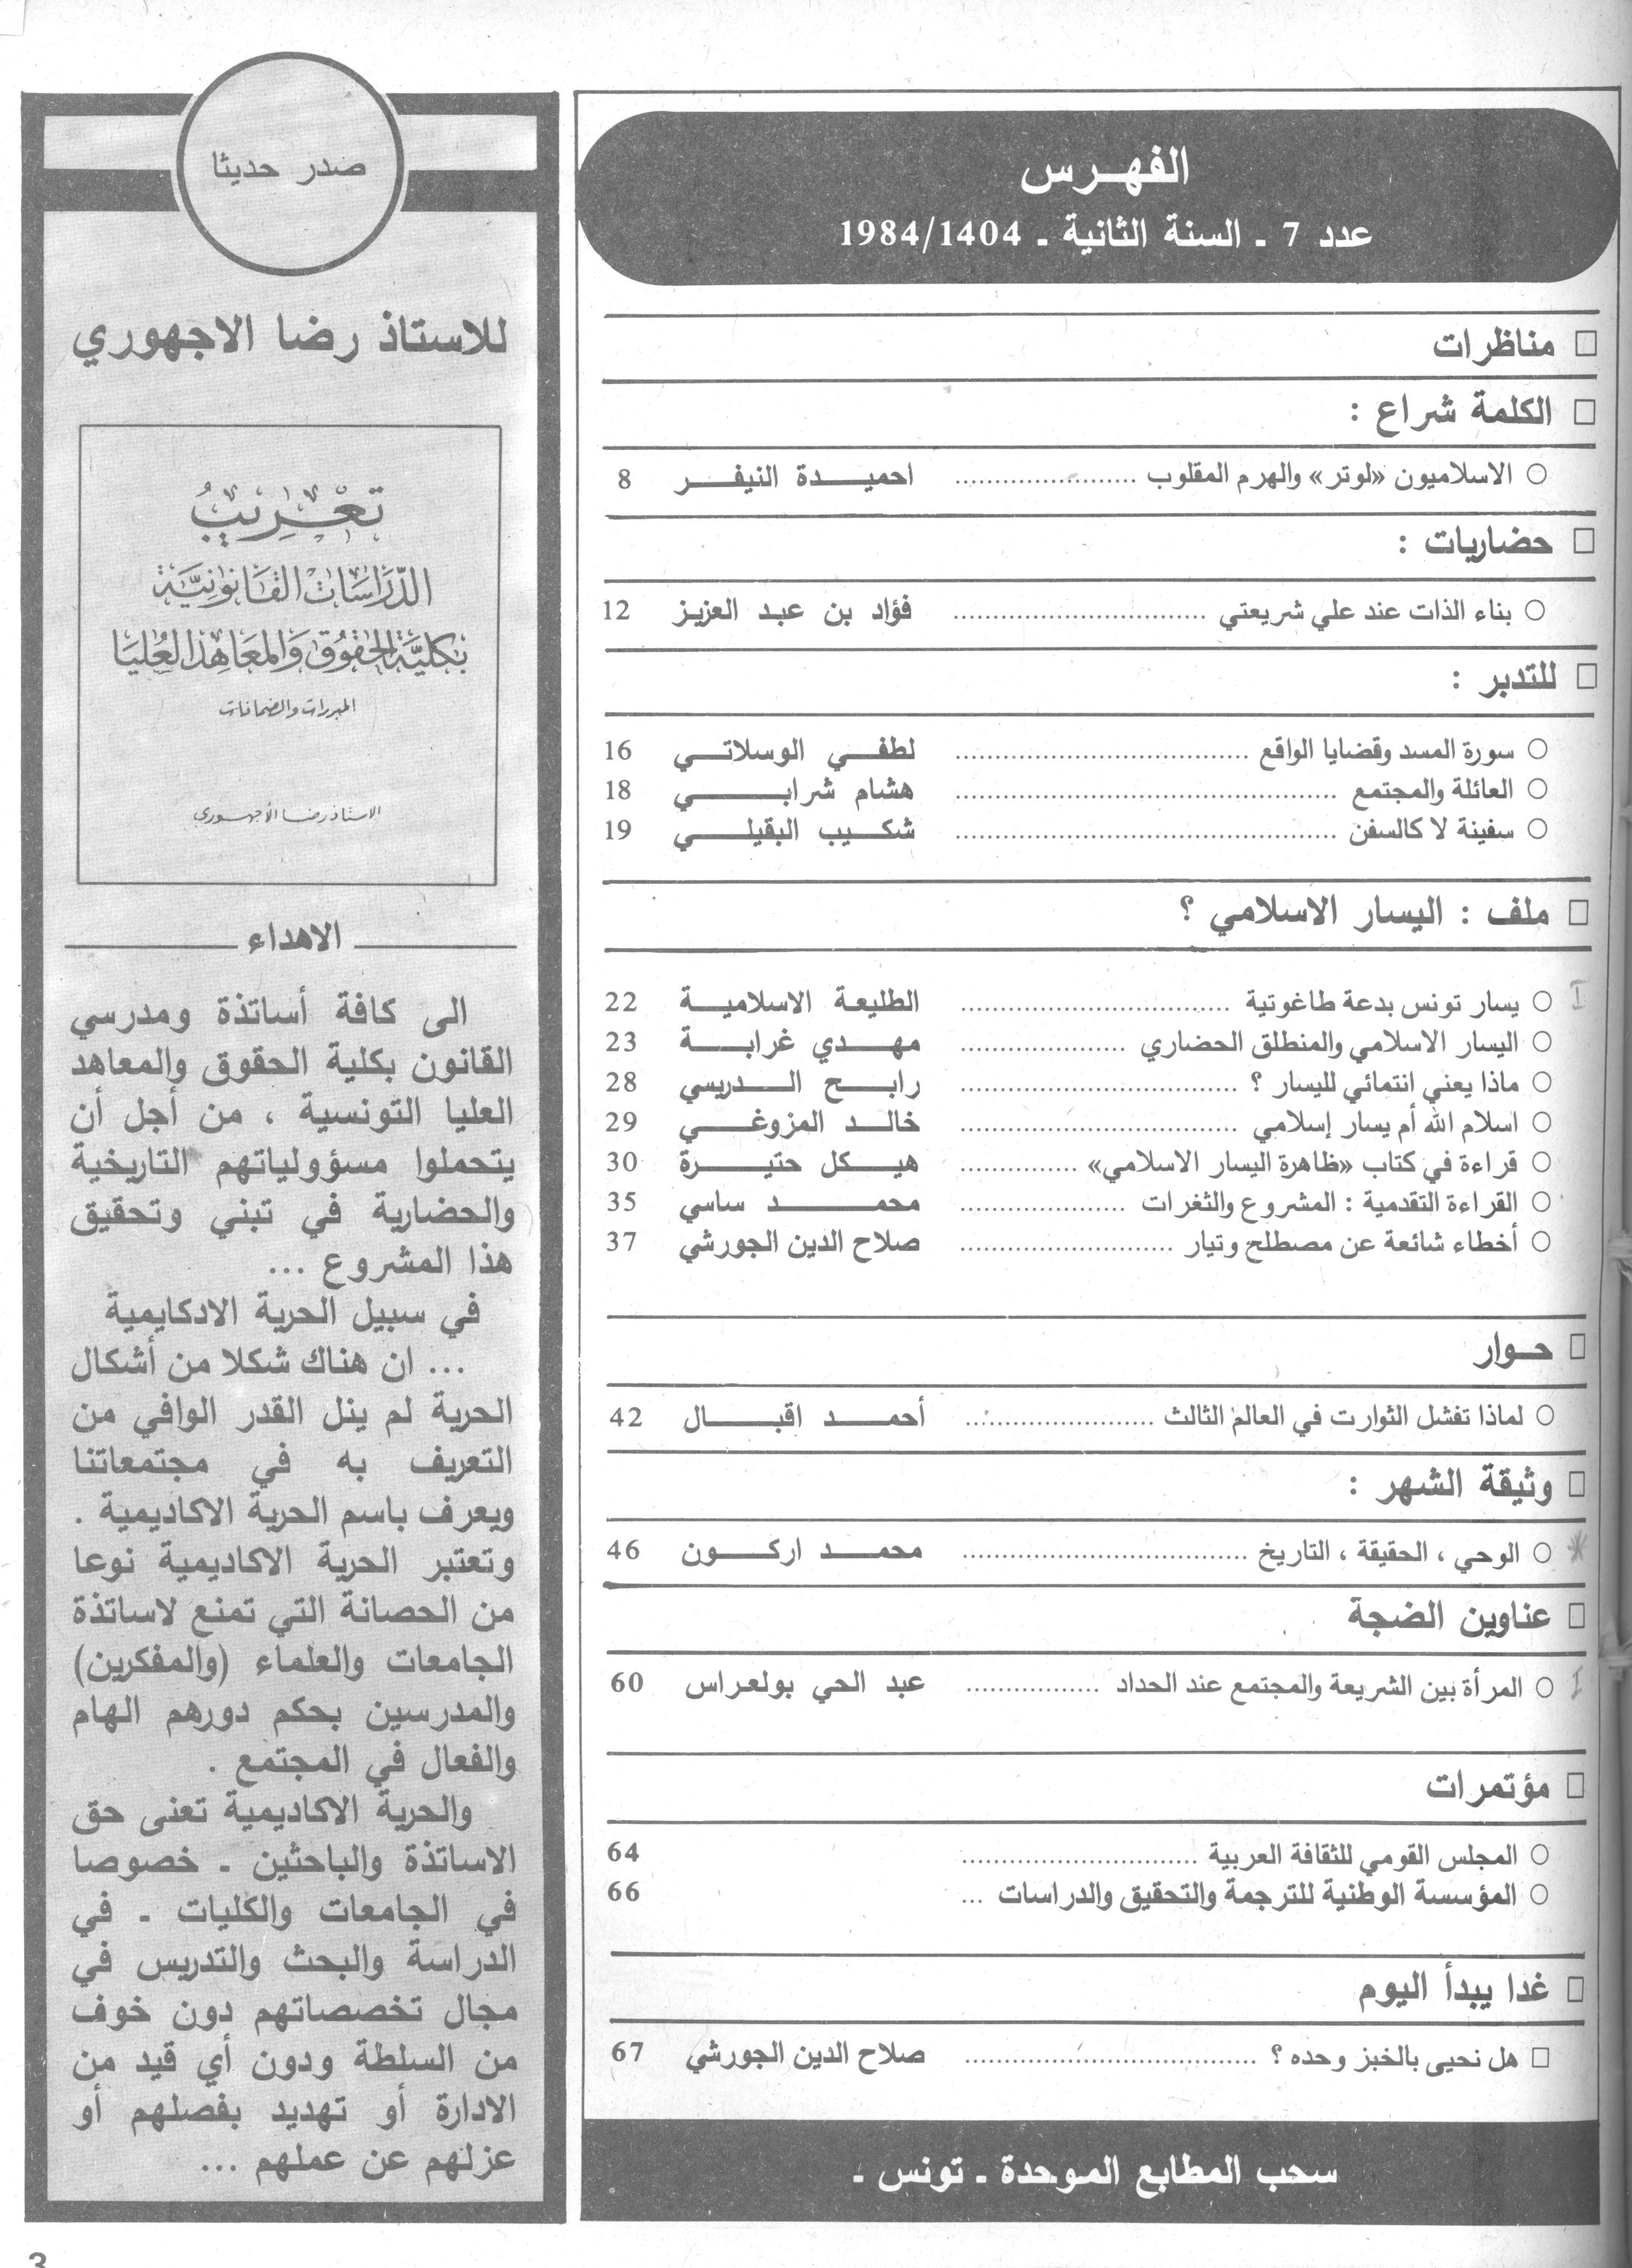 الفهرس
عدد 7 - السنة الثانية - 1984/1404
□ مناظرات
□ الكلمة شراع :
○ الاسلاميون «لوتر» والهرم المقلوب ........................ احميدة النيفر 8
□ حضاريات :
○ بناء الذات عند علي شريعتي ........................ فؤاد بن عبد العزيز 12
□ للتدبر :
○ سورة المسد وقضايا الواقع ........................ لطفي الوسلاتي 16
○ العائلة والمجتمع ........................ هشام شرابي 18
○ سفينة لا كالسفن ........................ شكيب البقيلي 19
□ ملف : اليسار الاسلامي ؟
○ يسار تونس بدعة طاغوتية ........................ الطليعة الاسلامية 22
○ اليسار الاسلامي والمنطلق الحضاري ........................ مهدي غرابة 23
○ ماذا يعني انتمائي لليسار ؟ ........................ رابح الدريسي 28
○ اسلام الله أم يسار إسلامي ........................ خالد المزوغي 29
○ قراءة في كتاب «ظاهرة اليسار الاسلامي» ............ هيكل حتيرة 30
○ القراءة التقدمية : المشروع والثغرات ........................ محمد ساسي 35
○ أخطاء شائعة عن مصطلح وتيار ........................ صلاح الدين الجورشي 37
□ حوار
○ لماذا تفشل الثوارت في العالم الثالث ........................ أحمد اقبال 42
□ وثيقة الشهر :
○ الوحي ، الحقيقة ، التاريخ ........................ محمد اركون 46
□ عناوين الضجة
○ المرأة بين الشريعة والمجتمع عند الحداد ................. عبد الحي بولعراس 60
□ مؤتمرات
○ المجلس القومي للثقافة العربية ........................ 64
○ المؤسسة الوطنية للترجمة والتحقيق والدراسات ... 66
□ غدا يبدأ اليوم
□ هل نحيى بالخبز وحده ؟ ........................ صلاح الدين الجورشي 67
سحب المطابع الموحدة - تونس -
صدر حديثا
للاستاذ رضا الاجهوري
تعريب
الدراسات القانونية
بكلية الحقوق والمعاهد العليا
المبررات والضمانات
الاستاذ رضا الأجهوري
الاهداء
الى كافة أساتذة ومدرسي
القانون بكلية الحقوق والمعاهد
العليا التونسية ، من أجل أن
يتحملوا مسؤولياتهم التاريخية
والحضارية في تبني وتحقيق
هذا المشروع ...
في سبيل الحرية الادكايمية
... ان هناك شكلا من أشكال
الحرية لم ينل القدر الوافي من
التعريف به في مجتمعاتنا
ويعرف باسم الحرية الاكاديمية .
وتعتبر الحرية الاكاديمية نوعا
من الحصانة التي تمنع لاساتذة
الجامعات والعلماء (والمفكرين)
والمدرسين بحكم دورهم الهام
والفعال في المجتمع .
والحرية الاكاديمية تعنى حق
الاساتذة والباحثين - خصوصا
في الجامعات والكليات - في
الدراسة والبحث والتدريس في
مجال تخصصاتهم دون خوف
من السلطة ودون أي قيد من
الادارة أو تهديد بفصلهم أو
عزلهم عن عملهم ...
3